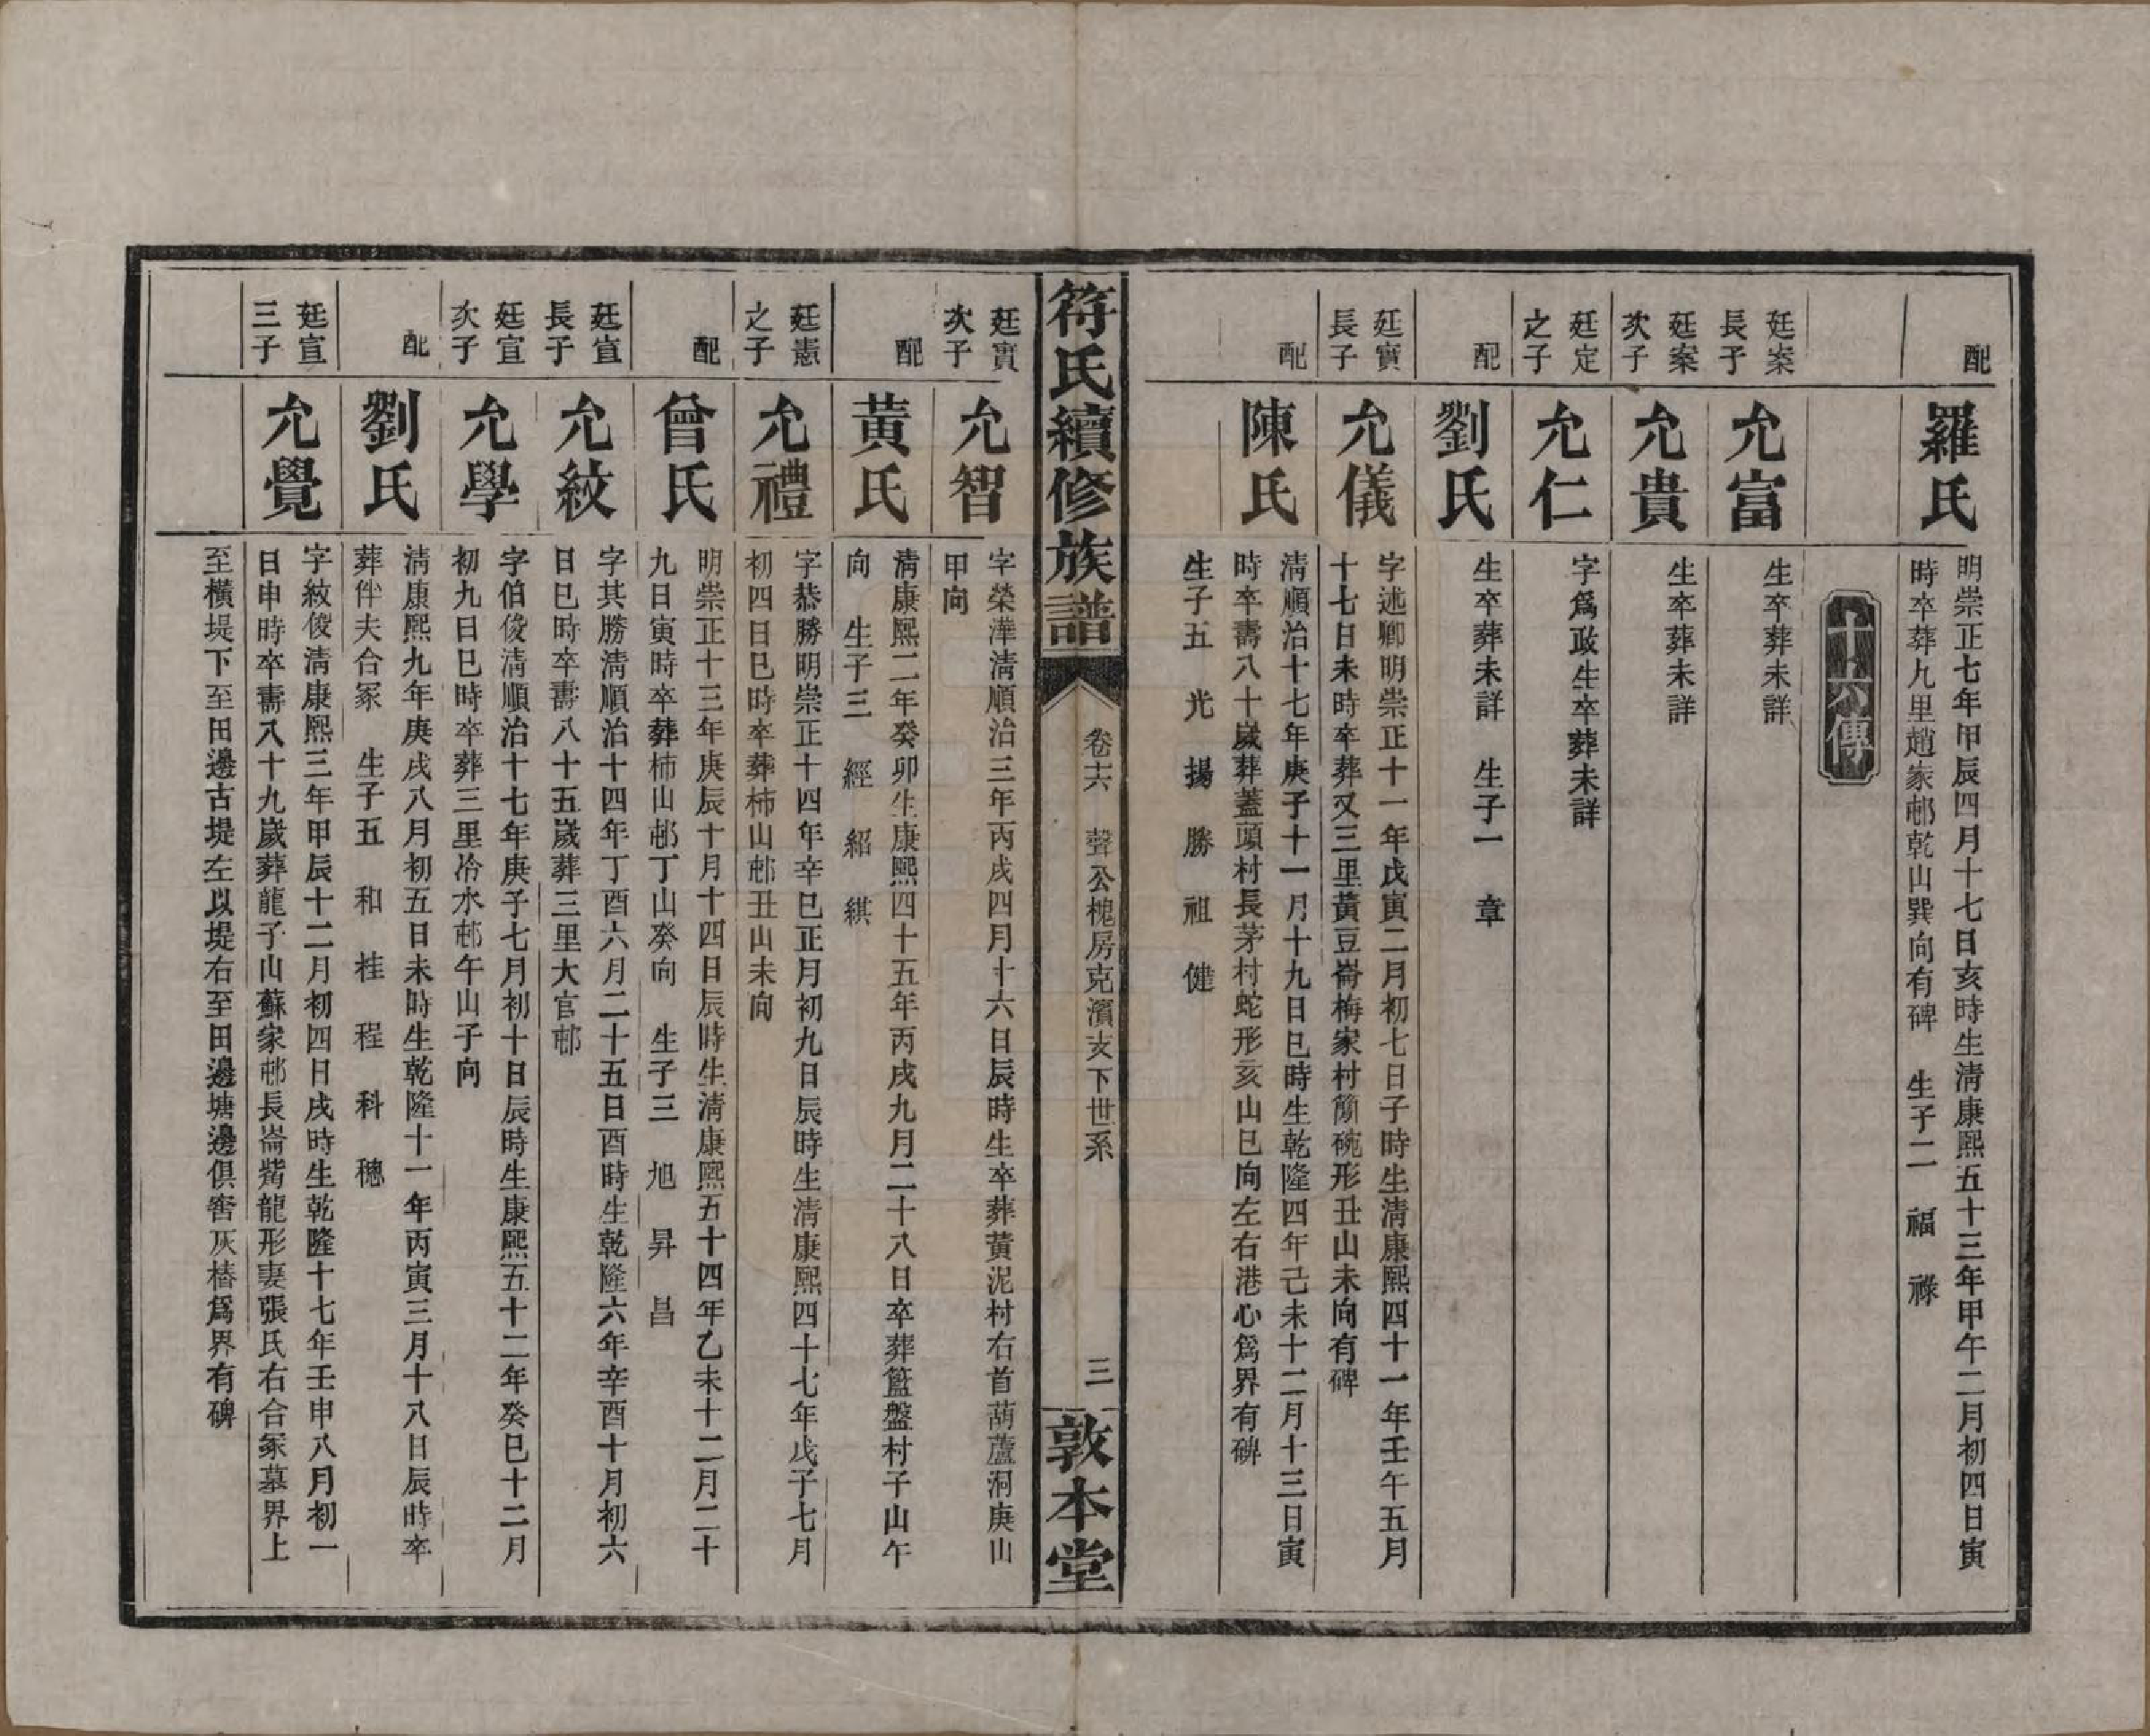 配
羅氏
明崇正七年甲辰四月十七日亥時生清康熙五十三年甲午二月初四日寅
時卒葬九里趙家邨乾山巽向有碑　生子二　福　祿
十六傳
廷案
長子
允富
生卒葬未詳
廷案
次子
允貴
生卒葬未詳
廷定
之子
允仁
字爲政生卒葬未詳
配
劉氏
生卒葬未詳　生子一　章
廷實
長子
允儀
字述卿明崇正十一年戊寅二月初七日子時生清康熙四十一年壬午五月
十七日未時卒葬又三里黃豆崙梅家村簡碗形丑山未向有碑
配
陳氏
清順治十七年庚子十一月十九日巳時生乾隆四年己未十二月十三日寅
時卒壽八十歲葬蓋頭村長茅村蛇形亥山巳向左右港心爲界有碑
生子五　光　揚　勝　祖　健
符氏續修族譜
卷六　聲公槐房克濱支下世系
三
敦本堂
廷實
次子
允智
字榮灃清順治三年丙戌四月十六日辰時生卒葬黃泥村右首葫蘆洞庚山
甲向
配
黃氏
清康熙二年癸卯生康熙四十五年丙戌九月二十八日卒葬籃盤村子山午
向　生子三　經　紹　綨
廷憲
之子
允禮
字恭勝明崇正十四年辛巳正月初九日辰時生清康熙四十七年戊子七月
初四日巳時卒葬柿山邨丑山未向
配
曾氏
明崇正十三年庚辰十月十四日辰時生清康熙五十四年乙未十二月二十
九日寅時卒葬柿山邨丁山癸向　生子三　旭　昇　昌
廷宣
長子
允紋
字其勝清順治十四年丁酉六月二十五日酉時生乾隆六年辛酉十月初六
日巳時卒壽八十五歲葬三里大官邨
廷宣
次子
允學
字伯俊清順治十七年庚子七月初十日辰時生康熙五十二年癸巳十二月
初九日巳時卒葬三里冷水邨午山子向
配
劉氏
清康熙九年庚戌八月初五日未時生乾隆十一年丙寅三月十八日辰時卒
葬伴夫合冢　生子五　和　桂　程　科　穗
廷宣
三子
允覺
字紋俊清康熙三年甲辰十二月初四日戌時生乾隆十七年壬申八月初一
日申時卒壽八十九歲葬龍子山蘇家邨長崙觜龍形妻張氏右合冢墓界上
至橫堤下至田邊古堤左以堤右至田邊塘邊俱窖灰樁爲界有碑